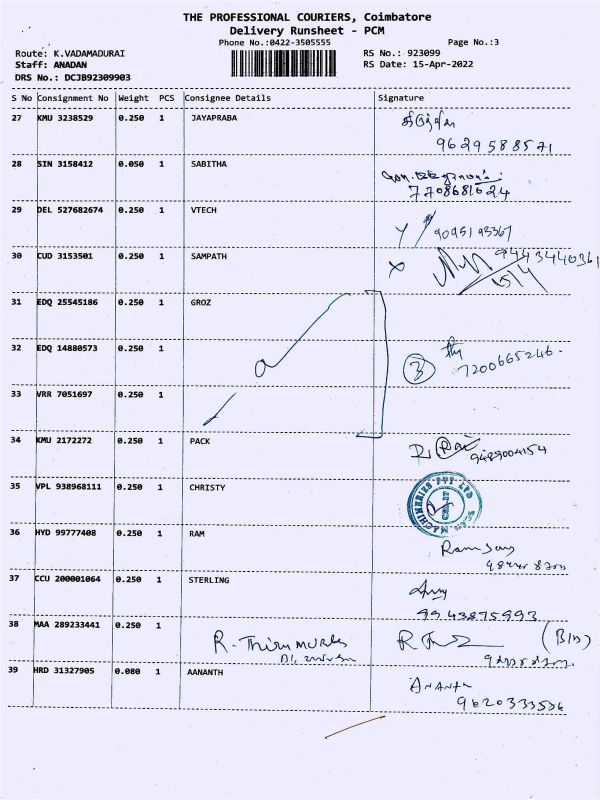 THE PROFESSIONAL COURIERS, Coimbatore
Delivery Runsheet - PCM
Phone No.:0422-3505555
Page No.:3
Route: K.VADAMADURAI
RS No.: 923099
Staff: ANADAN
RS Date: 15-Apr-2022
DRS No.: DCJB92309903
S No Consignment No Weight PCS Consignee Details Signature
27 KMU 3238529 0.250 1 JAYAPRABA
9629588571
28 SIN 3158412 0.050 1 SABITHA
7708681624
29 DEL 527682674 0.250 1 VTECH
9095193367
30 CUD 3153501 0.250 1 SAMPATH
9443440361
15/4
31 EDQ 25545186 0.250 1 GROZ
32 EDQ 14880573 0.250 1
3 7200665246.
33 VRR 7051697 0.250 1
34 KMU 2172272 0.250 1 PACK
9489004154
35 VPL 938968111 0.250 1 CHRISTY
MACHINERIES PVT LTD
36 HYD 99777408 0.250 1 RAM
37 CCU 200001064 0.250 1 STERLING
9943875993
38 MAA 289233441 0.250 1
39 HRD 31327905 0.080 1 AANANTH
Ananth
9620333536